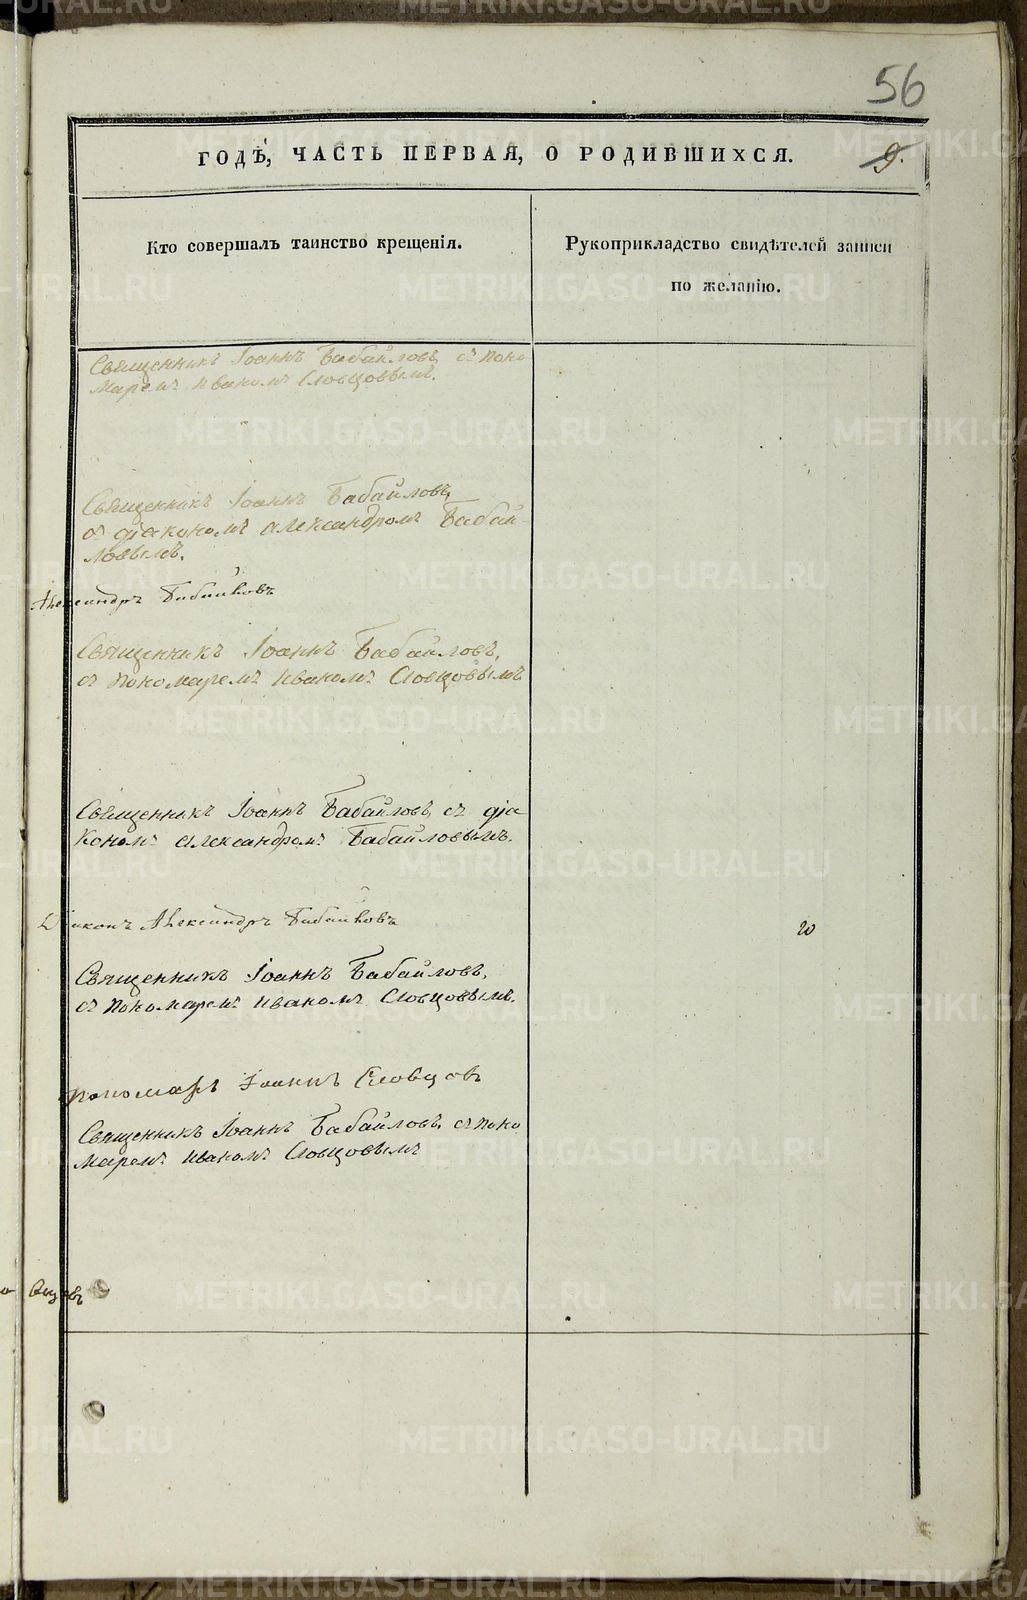 56
ГОДѢ, ЧАСТЬ ПЕРВАЯ, О РОДИВШИХСЯ.
9.
Кто совершалъ таинство крещенія.
Рукоприкладство свидѣтелей записи
по желанію.
Священникъ Іоаннъ Бабайловъ, съ поно
маремъ Иваномъ Словцовымъ.
Священникъ Іоаннъ Бабайловъ,
съ діакономъ Александромъ Бабай-
ловымъ.
Александръ Бабайловъ
Священникъ Іоаннъ Бабайловъ,
съ пономаремъ Иваномъ Словцовымъ
Священникъ Іоаннъ Бабайловъ, съ діа
кономъ Александромъ Бабайловымъ.
Діаконъ Александръ Бабайловъ
Священникъ Іоаннъ Бабайловъ,
съ пономаремъ Иваномъ Словцовымъ.
Пономарь Іоаннъ Словцовъ
Священникъ Іоаннъ Бабайловъ, съ поно
маремъ Иваномъ Словцовымъ
METRIKI.GASO-URAL.RU